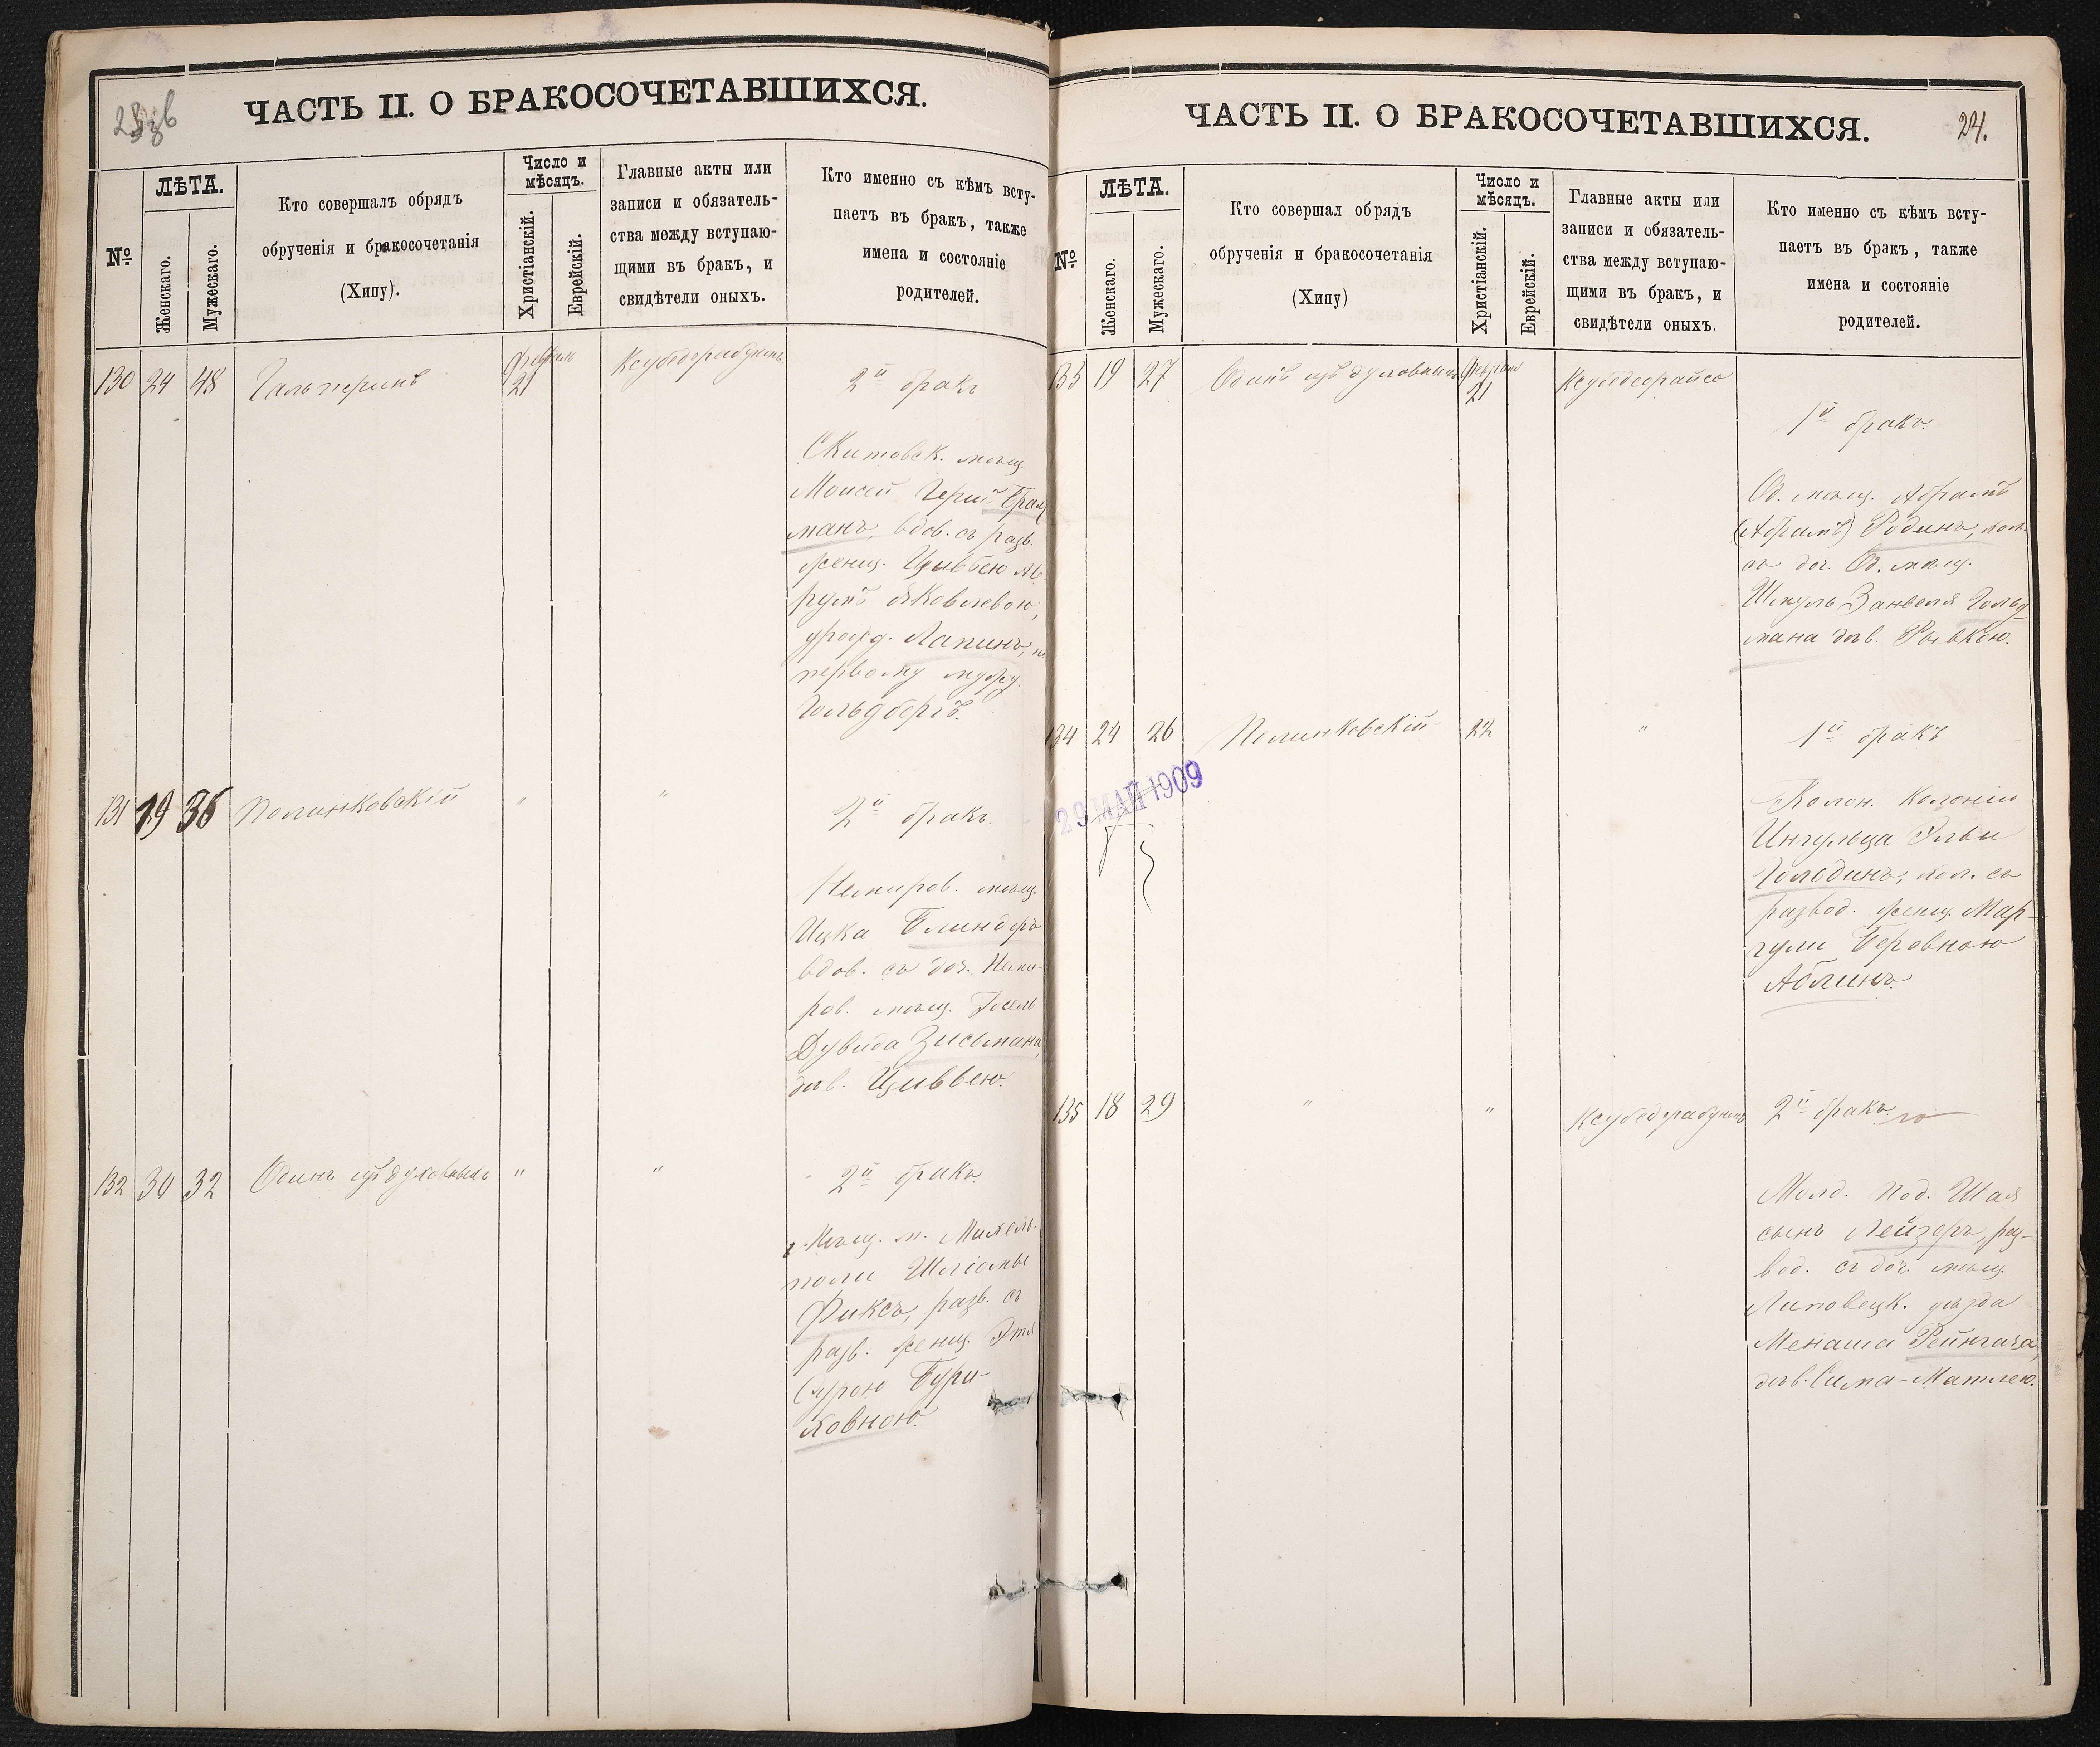 ЧАСТЬ II. О БРАКОСОЧЕТАВШИХСЯ.
№
ЛѢТА.
Женскаго.
Мужескаго.
Кто совершалъ обрядъ
обрученія и бракосочетанія
(Хипу).
Число и
мѣсяцъ.
Христіанскій.
Еврейскій.
Главные акты или
записи и обязатель-
ства между вступаю-
щими въ бракъ, и
свидѣтели оныхъ.
Кто именно съ кѣмъ всту-
паетъ въ бракъ, также
имена и состояніе
родителей.
130 24 48 Гальперинъ Февраль 21
2й бракъ
мѣщ.
Моисей Герш Брал
манъ, вдов. съ разв.
женщ. Цивбею
Яковлевою,
урожд. Лапинъ,
первому мужу
Гольдбергъ.
131 19 36 Полинковскій " "
2й бракъ
Немиров. мѣщ.
Ицка Блиндеръ
вдов. съ доч. Неми-
ров. мѣщ. Іосель
Дувида Зисьмана,
дѣв. Циввею.
132 30 32 Одинъ изъ духовныхъ " "
2й бракъ
Мѣщ. м. Михель-
поли Шліомы
Фиксъ, разв. съ
разв. женщ. Этя
Сурою Бури-
ковною.
ЧАСТЬ II. О БРАКОСОЧЕТАВШИХСЯ.
24.
№
ЛѢТА.
Женскаго.
Мужескаго.
Кто совершал обрядъ
обрученія и бракосочетанія
(Хипу)
Число и
мѣсяцъ.
Христіанскій.
Еврейскій.
Главные акты или
записи и обязатель-
ства между вступаю-
щими въ бракъ, и
свидѣтели оныхъ.
Кто именно съ кѣмъ всту-
паетъ въ бракъ, также
имена и состояніе
родителей.
133 19 27 Одинъ изъ духовныхъ Февраль 21 Ксубедеорайсо
1й бракъ.
Од. мѣщ. Абрамъ
(Абрамъ) Родинъ, хол.
съ доч. Од. мѣщ.
Шмуль Занвеля Гольд-
мана дѣв. Рывкою.
134 24 26 Полинковскій 22 "
1й бракъ
29 МАЙ 1909
Колон. колоніи
Ингульца Эльи
Гольдинъ, хол. съ
развод. женщ. Мар-
гули Беровною
Аблинъ.
135 18 29 " "
2й бракъ
Молд. под. Шая
сынъ Лейзеръ, раз-
вод. съ доч. мѣщ.
Липовецк. уѣзда
Менаша Рейнгача,
дѣв. Сима-Матлею.